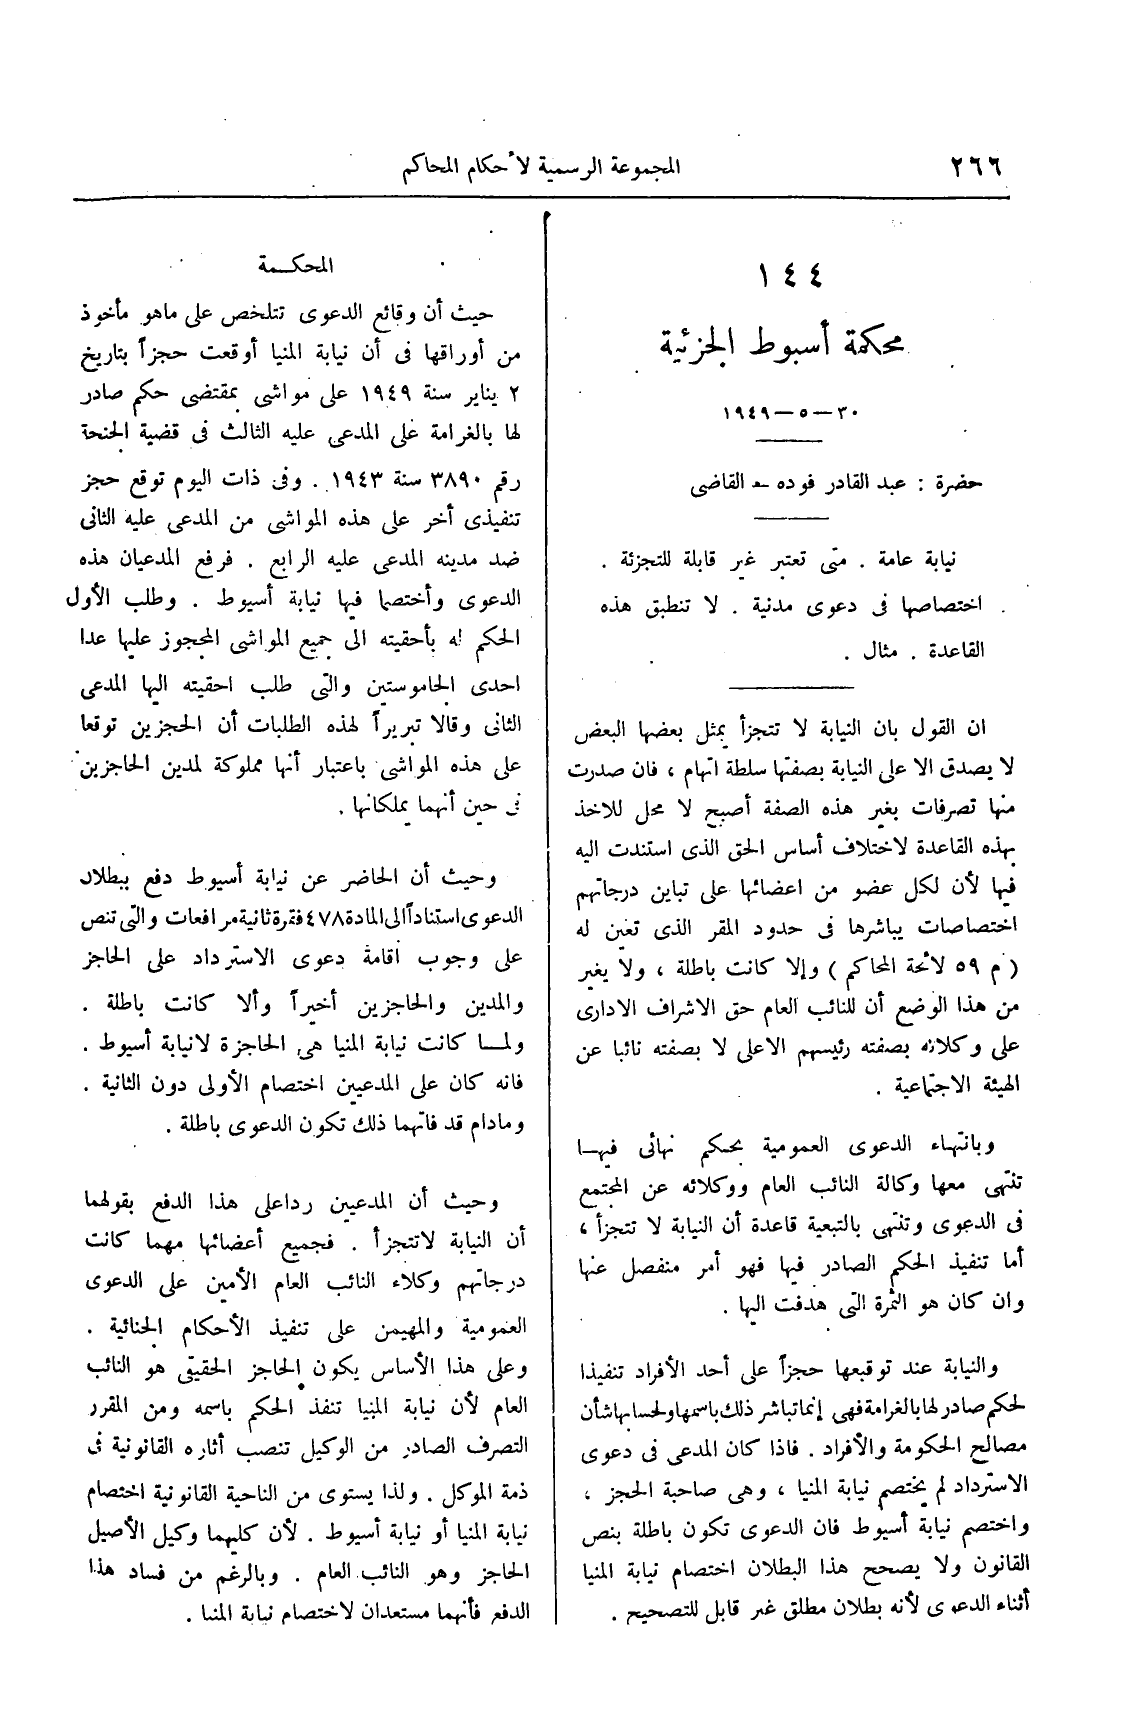 ٢٦٦
المجموعة الرسمية لأحكام المحاكم
١٤٤
محكمة أسيوط الجزئية
٣٠ — ٥ — ١٩٤٩
حضرة : عبد القادر فوده — القاضى
نيابة عامة . متى تعتبر غير قابلة للتجزئة .
اختصاصها فى دعوى مدنية . لا تنطبق هذه
القاعدة . مثال .
ان القول بان النيابة لا تتجزأ يمثل بعضها البعض
لا يصدق الا على النيابة بصفتها سلطة اتهام ، فان صدرت
منها تصرفات بغير هذه الصفة أصبح لا محل للاخذ
بهذه القاعدة لاختلاف أساس الحق الذى استندت اليه
فيها لأن لكل عضو من اعضائها على تباين درجاتهم
اختصاصات يباشرها فى حدود المقر الذى تعين له
( م ٥٩ لائحة المحاكم ) وإلا كانت باطلة ، ولا يغير
من هذا الوضع أن للنائب العام حق الاشراف الادارى
على وكلائه بصفته رئيسهم الاعلى لا بصفته نائبا عن
الهيئة الاجتماعية .
وبانتهاء الدعوى العمومية بحكم نهائى فيها
تنتهى معها وكالة النائب العام ووكلائه عن المجتمع
فى الدعوى وتنتهى بالتبعية قاعدة أن النيابة لا تتجزأ ،
أما تنفيذ الحكم الصادر فيها فهو أمر منفصل عنها
وان كان هو الثمرة التى هدفت اليها .
والنيابة عند توقيعها حجزاً على أحد الأفراد تنفيذا
لحكم صادر لها بالغرامة فهى إنما تباشر ذلك باسمها ولحسابها شأن
مصالح الحكومة والأفراد . فاذا كان المدعى فى دعوى
الاسترداد لم يختصم نيابة المنيا ، وهى صاحبة الحجز ،
واختصم نيابة أسيوط فان الدعوى تكون باطلة بنص
القانون ولا يصحح هذا البطلان اختصام نيابة المنيا
أثناء الدعوى لأنه بطلان مطلق غير قابل للتصحيح .
المحكمة
حيث أن وقائع الدعوى تتلخص على ماهو مأخوذ
من أوراقها فى أن نيابة المنيا أوقعت حجزاً بتاريخ
٢ يناير سنة ١٩٤٩ على مواشى بمقتضى حكم صادر
لها بالغرامة على المدعى عليه الثالث فى قضية الجنحة
رقم ٣٨٩٠ سنة ١٩٤٣ . وفى ذات اليوم توقع حجز
تنفيذى أخر على هذه المواشى من المدعى عليه الثانى
ضد مدينه المدعى عليه الرابع . فرفع المدعيان هذه
الدعوى وأختصما فيها نيابة أسيوط . وطلب الأول
الحكم له بأحقيته الى جميع المواشى المحجوز عليها عدا
احدى الجاموستين والتى طلب احقيته اليها المدعى
الثانى وقالا تبريراً لهذه الطلبات أن الحجزين توقعا
على هذه المواشى باعتبار أنها مملوكة لمدين الحاجزين
فى حين أنهما يملكانها .
وحيث أن الحاضر عن نيابة أسيوط دفع ببطلان
الدعوى استناداً الى المادة ٤٧٨ فقرة ثانية مرافعات والتى تنص
على وجوب أقامة دعوى الاسترداد على الحاجز
والمدين والحاجزين أخيراً وألا كانت باطلة .
ولما كانت نيابة المنيا هى الحاجزة لانيابة أسيوط .
فانه كان على المدعيين اختصام الأولى دون الثانية .
ومادام قد فاتهما ذلك تكون الدعوى باطلة .
وحيث أن المدعيين ردا على هذا الدفع بقولهما
أن النيابة لاتتجزأ . فجميع أعضائها مهما كانت
درجاتهم وكلاء النائب العام الأمين على الدعوى
العمومية والمهيمن على تنفيذ الأحكام الجنائية .
وعلى هذا الأساس يكون الحاجز الحقيقى هو النائب
العام لأن نيابة المنيا تنفذ الحكم باسمه ومن المقرر
التصرف الصادر من الوكيل تنصب أثاره القانونية فى
ذمة الموكل . ولذا يستوى من الناحية القانونية اختصام
نيابة المنيا أو نيابة أسيوط . لأن كليهما وكيل الأصيل
الحاجز وهو النائب العام . وبالرغم من فساد هذا
الدفع فأنهما مستعدان لاختصام نيابة المنيا .